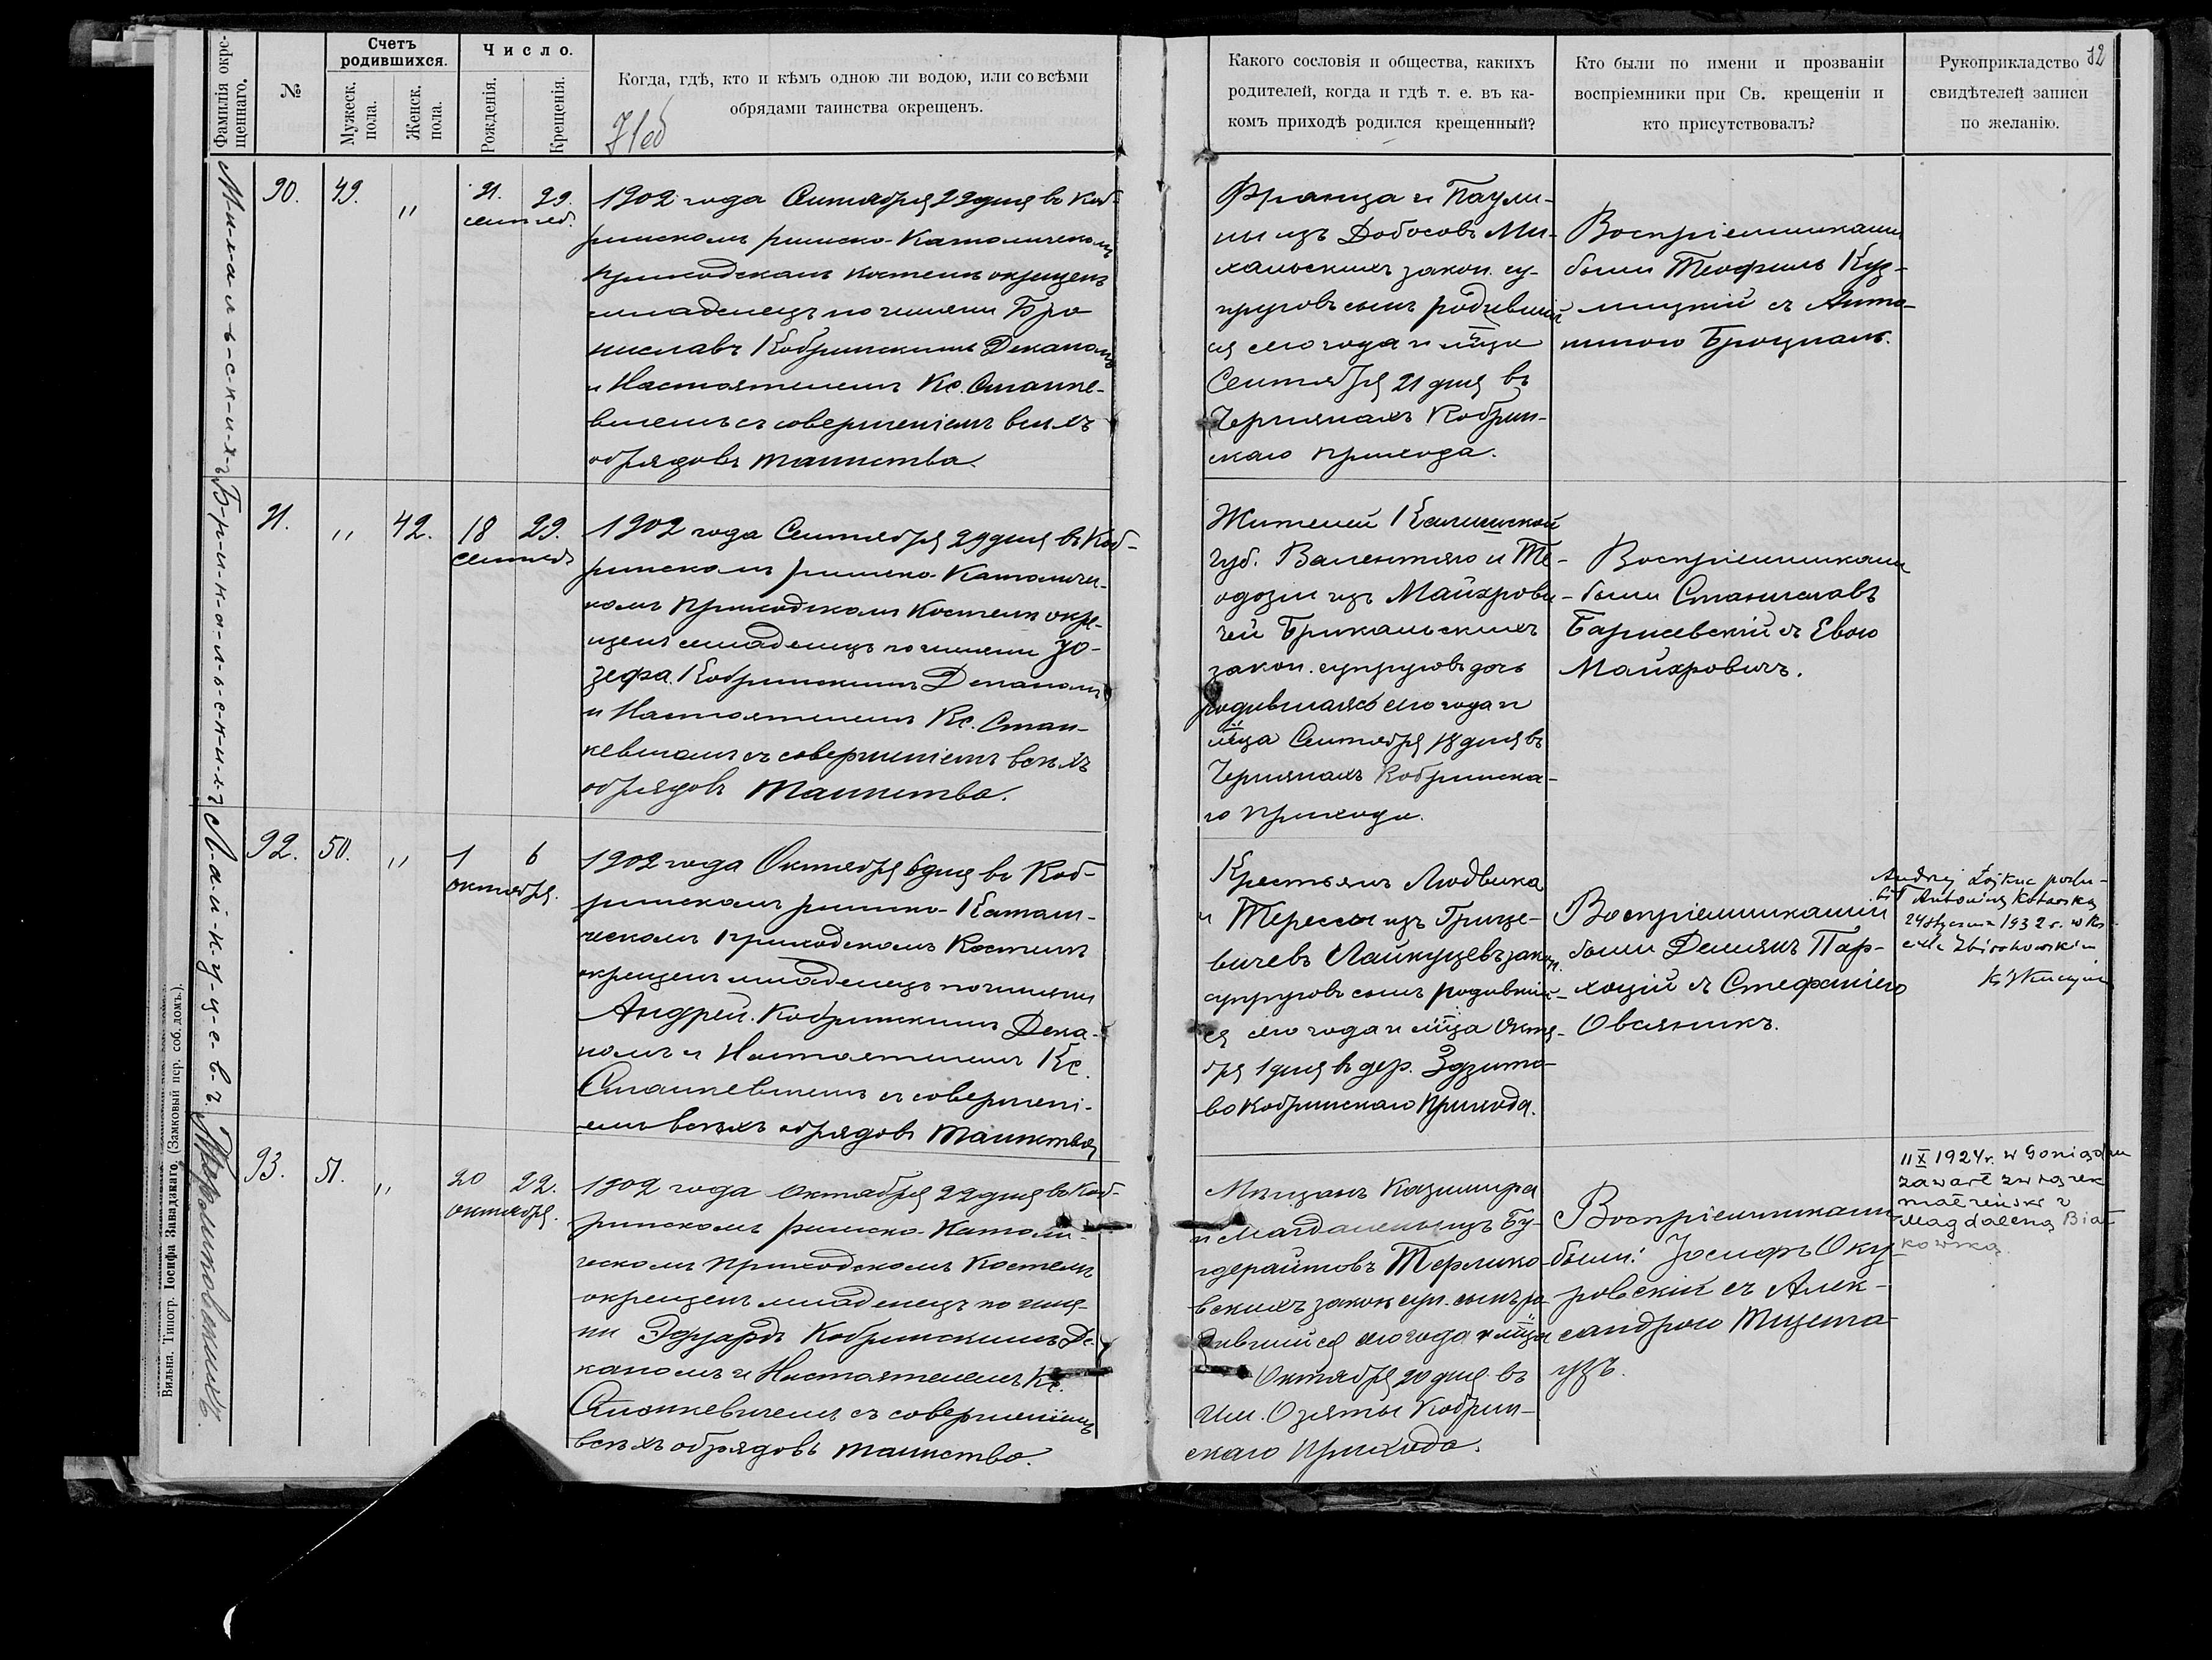 Фамилія окре-
щеннаго.
№
Счетъ
родившихся.
Мужеск.
пола.
Женск.
пола.
Число.
Рожденія.
Крещенія.
Когда, гдѣ, кто и кѣмъ одною ли водою, или со всѣми
обрядами таинства окрещенъ.
Какого сословія и общества, какихъ
родителей, когда и гдѣ т. е. въ ка-
комъ приходѣ родился крещенный?
Кто были по имени и прозваніи
воспріемники при Св. крещеніи и
кто присутствовалъ?
Рукоприкладство
свидѣтелей записи
по желанію.
Михальскихъ
90. 49. „ 21. 29.
сентяб.
1902 года Сентября 29 дня въ Коб-
ринскомъ римско-Католическомъ
приходскомъ костелѣ окрещенъ
младенецъ по имени Бро
ниславъ Кобринскимъ Деканомъ
и Настоятелемъ Кс. Станке-
вичемъ съ совершеніемъ всѣхъ
обрядовъ таинства.
Франца и Паули-
ны изъ Добосовъ Ми-
хальскихъ закон. су-
пруговъ сынъ родивший
ся сего года и мѣца
Сентября 21 дня въ
Чернянахъ Кобрин-
скаго прихода.
Воспріемниками
были Теофиль Куз-
мицкій съ Анто-
ниною Броцналь.
Брикальскихъ
91. „ 42. 18 29.
сентяб
1902 года Сентября 29 дня въ Коб-
ринскомъ римско-Католиче-
комъ приходскомъ Костелѣ окре-
щенъ младенецъ по имени Ю-
зефа. Кобринскимъ Деканомъ
и Настоятелемъ Кс. Стан-
кевичемъ съ совершеніемъ всѣхъ
обрядовъ таинства.
Жителей Калишской
губ. Валентяго и Те-
одозіи изъ Майхрови-
чей Брикальскихъ
закон. супруговъ дочь
родившаяся сего года и
мѣца Сентября 18 дня въ
Чернянахъ Кобринска-
го прихода.
Воспріемниками
были Станиславъ
Барисевскій съ Евою
Майхровичъ.
Лайкуцевъ
92. 50. „ 1 6
октября.
1902 года Октября 6 дня въ Коб-
ринскомъ римско-Католи-
ческомъ приходскомъ Костелѣ
окрещенъ младенецъ по имени
Андрей. Кобринскимъ Дека-
номъ и Настоятелемъ Кс.
Станкевичемъ съ совершені-
емъ всѣхъ обрядовъ таинства
Крестьянъ Людвика
и Терессы изъ Грице-
вичевъ Лайкуцевъ закон.
супруговъ сынъ родивший-
ся сего года и мѣца Октя-
бря 1 дня въ дер. Здзито-
во Кобринскаго прихода.
Воспріемниками
были Демянъ Пар-
хоцій съ Стефаніею
Овсяникъ.
Andrzej Łojkuc poślu-
bił Antoniną
24 stycznia 1932 r. w Ko
ściele Zbirohowskim
Терликовскихъ
93. 51. „ 20 22.
октября.
1902 года Октября 22 дня въ Коб-
ринскомъ римско-Католи-
ческомъ приходскомъ костелѣ
окрещенъ младенецъ по име-
ни Эдуардъ Кобринскимъ Де-
каномъ и Настоятелемъ Кс.
Станкевичемъ съ совершеніемъ
всѣхъ обрядовъ таинства.
Мѣщанъ Казимира
и Магдалены изъ Бу-
гдерайтовъ Терлико-
вскихъ закон. суп. сынъ ро
дившийся сего года и мѣца
Октября 20 дня въ
Им. Озяты Кобрин-
скаго прихода.
Воспріемниками
были: Іосифъ Оку-
ровскій съ Алек-
сандрою
11 X 1924 r. w Goniądzu
zawarł związek
małżeński z
Magdaleną Biał
kowską
Вильна. Типогр. Іосифа Завадзкаго. (Замковый пер. соб. домъ.).